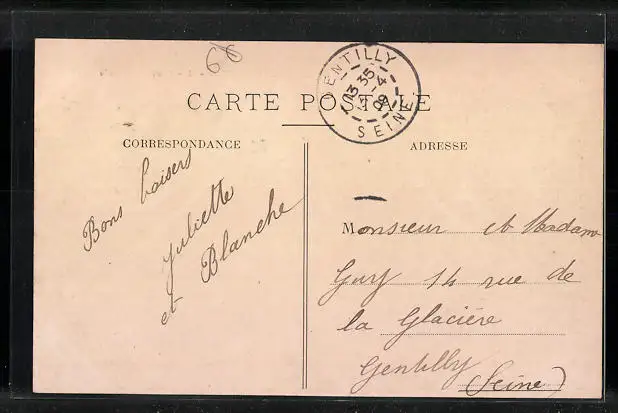 66
GENTILLY
13 35
4
09
SEINE
CARTE POSTALE
CORRESPONDANCE
Bons baisers
Juliette
et Blanche
ADRESSE
Monsieur et Madame
Gury 14 rue de
la Glacière
Gentilly (Seine)